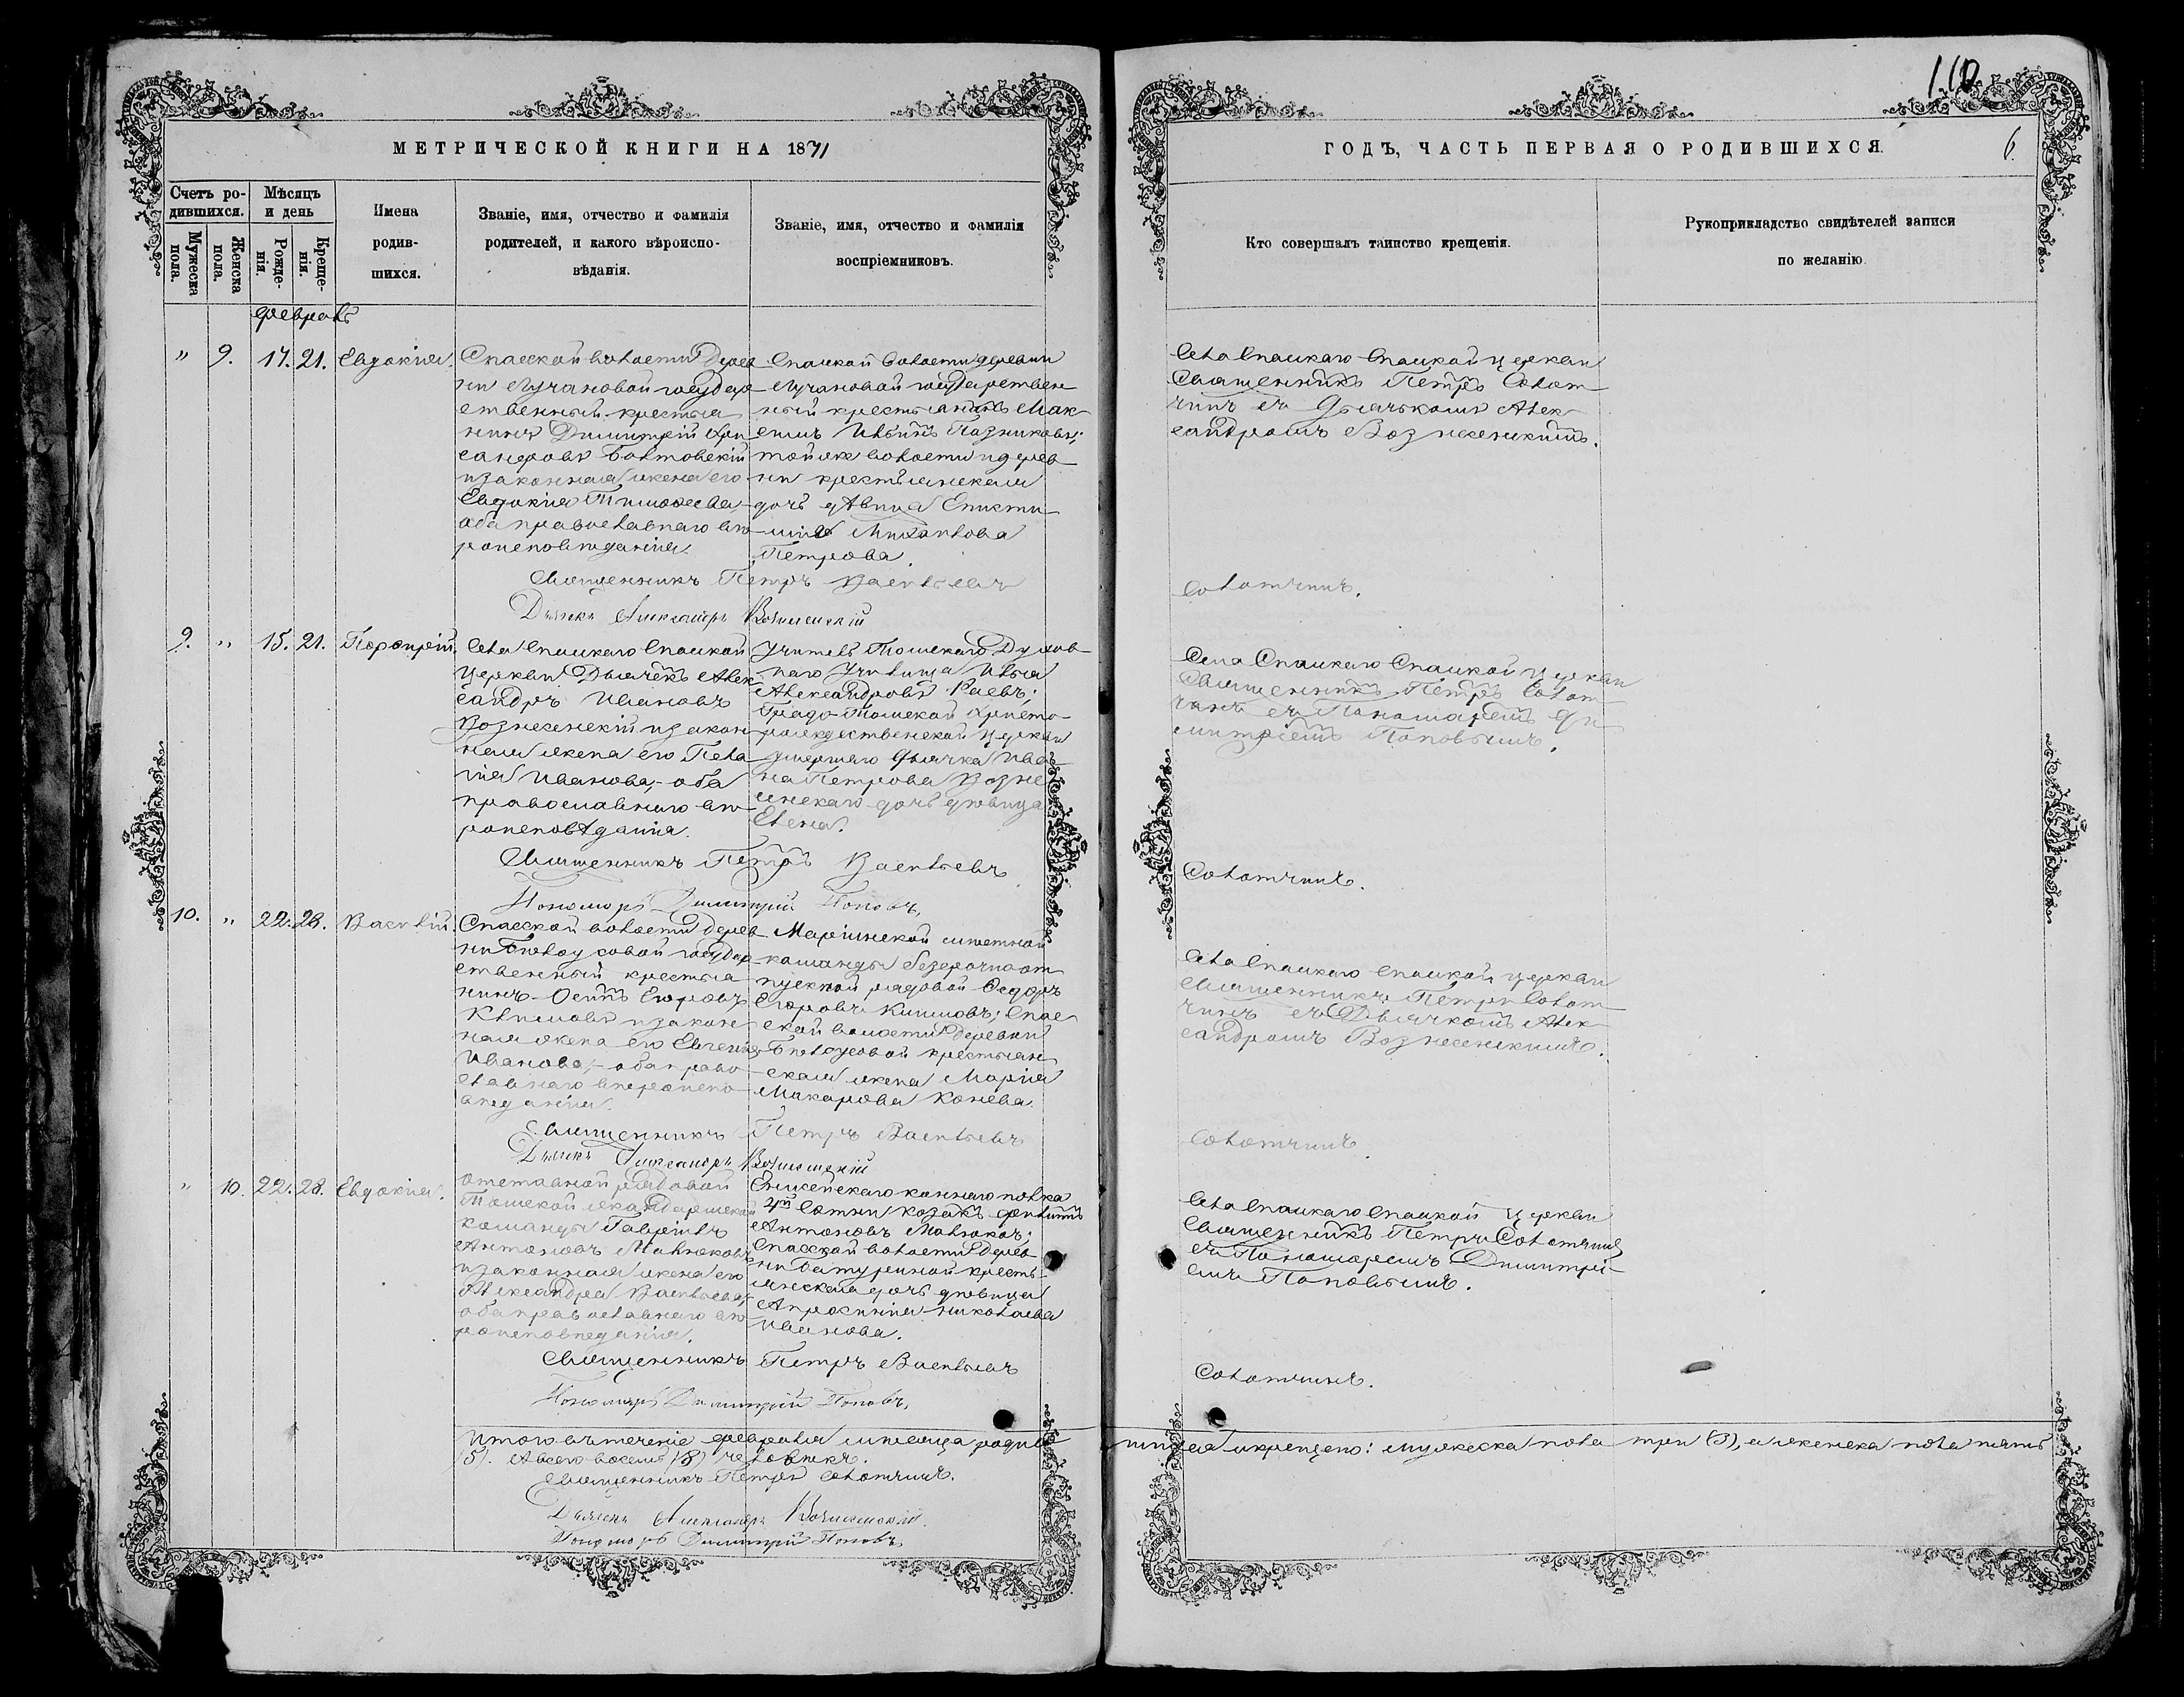 110
МЕТРИЧЕСКОЙ КНИГИ НА 1871
ГОДЪ, ЧАСТЬ ПЕРВАЯ О РОДИВШИХСЯ.
6.
Счетъ ро-
дившихся.
Мѣсяцъ
и день
Мужеска
пола.
Женска
пола.
Рожде-
нія.
Креще-
нія.
Имена
родив-
шихся.
Званіе, имя, отчество и фамилія
родителей, и какого вѣроиспо-
вѣданія.
Званіе, имя, отчество и фамилія
воспріемниковъ.
Кто совершалъ таинство крещенія.
Рукоприкладство свидѣтелей записи
по желанію.
Февраль
" 9. 17. 21. Евдокія.
Спасской волости дерев
ни Лучановой государ
ственный крестья
нинъ Димитрій
Болтовскій
и законная жена его
Евдокія Тимоѳеева,
оба православнаго вѣ
роисповѣданія.
Спасской волости деревни
Лучановой государствен
ный крестьянинъ Мак
симъ Пазниковъ;
той же волости и дерев
ни крестьянская
дочь дѣвица Еписти
мія Михайлова
Петрова.
Села Спаскаго Спаской церкви
Священникъ Петръ Солот
чинъ съ Дьячькомъ Алек
сандромъ Вознесенскимъ.
Священникъ Петръ Васильевъ
Солотчинъ.
Дьячекъ Александръ Вознесенскій
9. " 15. 21. Порфирій.
Села Спаскаго Спаской
церкви Дьячекъ Алек
сандръ Ивановъ
Вознесенскій и закон
ная жена его Пела
гія Иванова, оба
православнаго вѣ
роисповѣданія.
Учитель Томскаго Духов
наго Училища Илья
Александровъ Раевъ;
Градо-Томской Христо
рождественской церкви
умершаго Дьячка Ива
на Петрова Возне
сенскаго дочь дѣвица
Елена.
Села Спаскаго Спаской церкви
Священникъ Петръ Солот
чинъ съ Пономаремъ Ди
митріемъ Поповымъ.
Священникъ Петръ Васильевъ
Солотчинъ.
Пономарь Димитрій Поповъ,
10. " 22. 28. Василій.
Спасской волости дерев
ни Бѣлоусовой государ
ственный крестья
нинъ Осипъ Егоровъ
Климовъ и закон
ная жена его Евгенія
Иванова, оба право
славнаго вѣроиспо
вѣданія.
Маріинской мѣстной
команды безсрочноот
пускной рядовой Ѳедоръ
Егоровъ Климовъ; Спас
ской волости деревни
Бѣлоусовой крестьян
ская жена Марія
Макарова Конева.
Села Спаскаго Спаской церкви
Священникъ Петръ Солот
чинъ съ Дьячкомъ Алек
сандромъ Вознесенскимъ.
Священникъ Петръ Васильевъ
Солотчинъ.
Дьячекъ Александръ Вознесенскій
" 10. 22. 28. Евдокія.
Отставной рядовой
Томской жандармской
команды Гавріилъ
Антоновъ Мавлюковъ
и законная жена его
Александра Васильева,
оба православнаго вѣ
роисповѣданія.
Енисейскаго коннаго полка
4й Сотни козакъ Филиппъ
Антоновъ Мавлюковъ;
Спасской волости дерев
ни Батуриной кресть
янская дочь дѣвица
Апросинія Николаева
Иванова.
Села Спаскаго Спаской церкви
Священникъ Петръ Солотчинъ
съ Пономаремъ Димитрі
емъ Поповымъ.
Священникъ Петръ Васильевъ
Солотчинъ.
Пономарь Димитрій Поповъ,
Итого въ теченіе февраля мѣсяца родив
шихся и крещено: мужеска пола три (3), а женска пола пять
(5). А всего восемь (8) человѣкъ.
Священникъ Петръ Солотчинъ.
Дьячекъ Александръ Вознесенскій.
Пономарь Димитрій Поповъ,